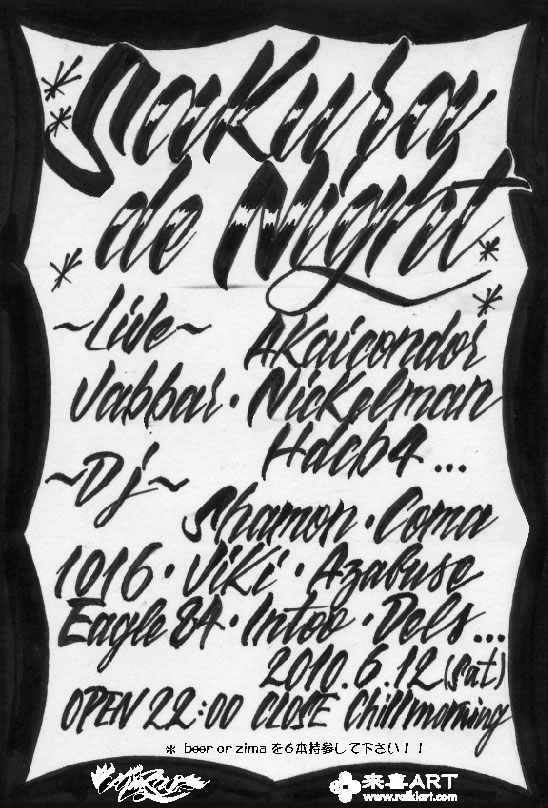 Sakura
de Night
~Live~ AKaicondor
Jabbar · Nickelman
Hdcb4 ...
~Dj~
Shamon · Coma
1016 · ViKi · Azabuse
Eagle 84 · Intoo · Dels...
2010.6.12 (sat)
OPEN 22:00 CLOSE Chillmorning
※ beer or zima を6本持参して下さい!!
来喜ART
www.raikiart.com